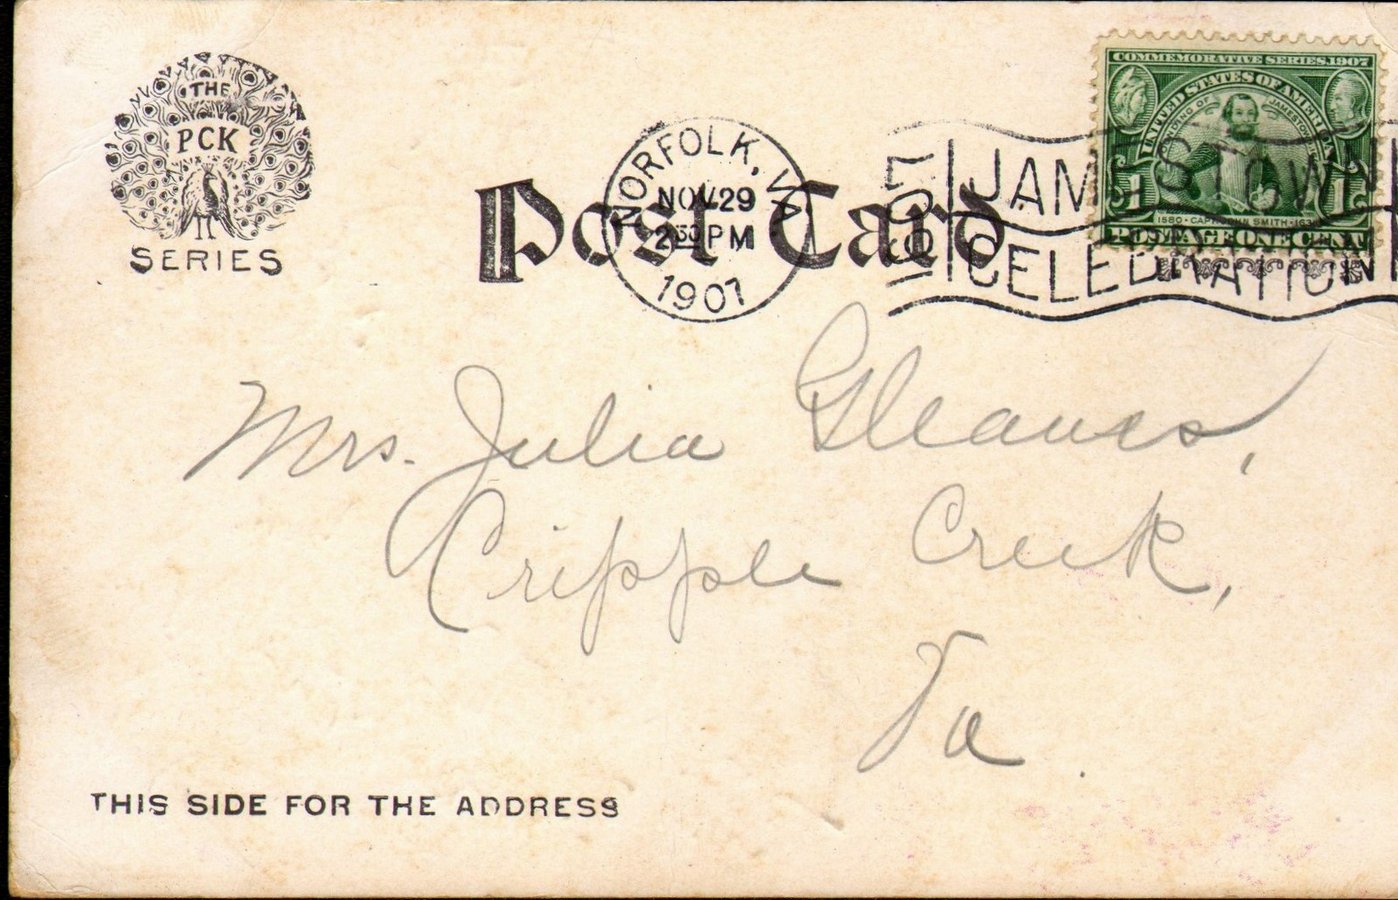 THE
PCK
SERIES
Post Card
NORFOLK, VA
NOV 29
2 30 PM
1907
1607
1907
JAMESTOWN
CELEBRATION
COMMEMORATIVE SERIES, 1907
UNITED STATES OF AMERICA
FOUNDING OF JAMESTOWN
1
1
1580 · CAPT JOHN SMITH · 1631
POSTAGE ONE CENT
Mrs. Julia Gleaves,
Cripple Creek,
Va.
THIS SIDE FOR THE ADDRESS